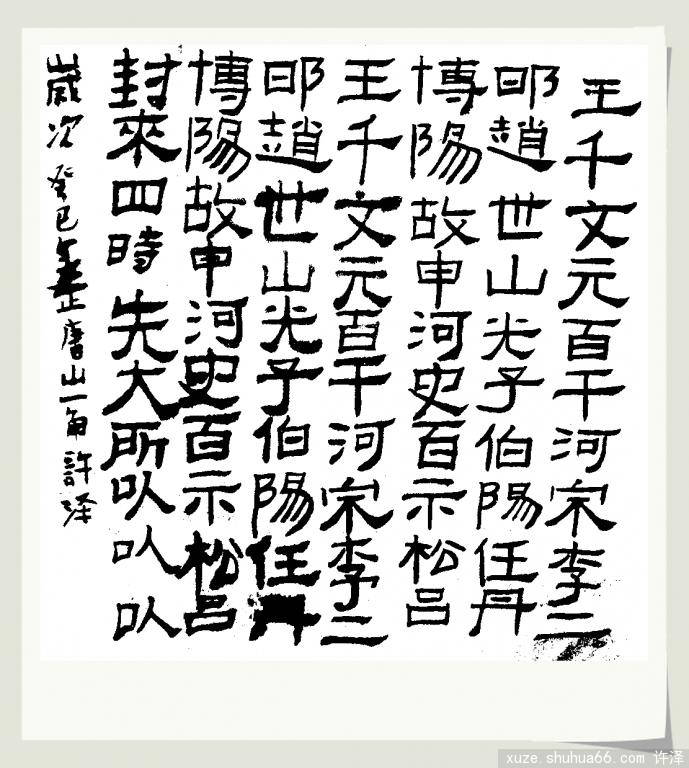 王千文元百干河宋李二
邙趙世山光子伯陽任丹
博陽故申河史百示松吕
王千文元百干河宋李二
邙趙世山光子伯陽任丹
博陽故申河史百示松吕
封來四時先大所以以以
歲次癸巳 唐山 許泽
xuze.shuhua66.com 许泽